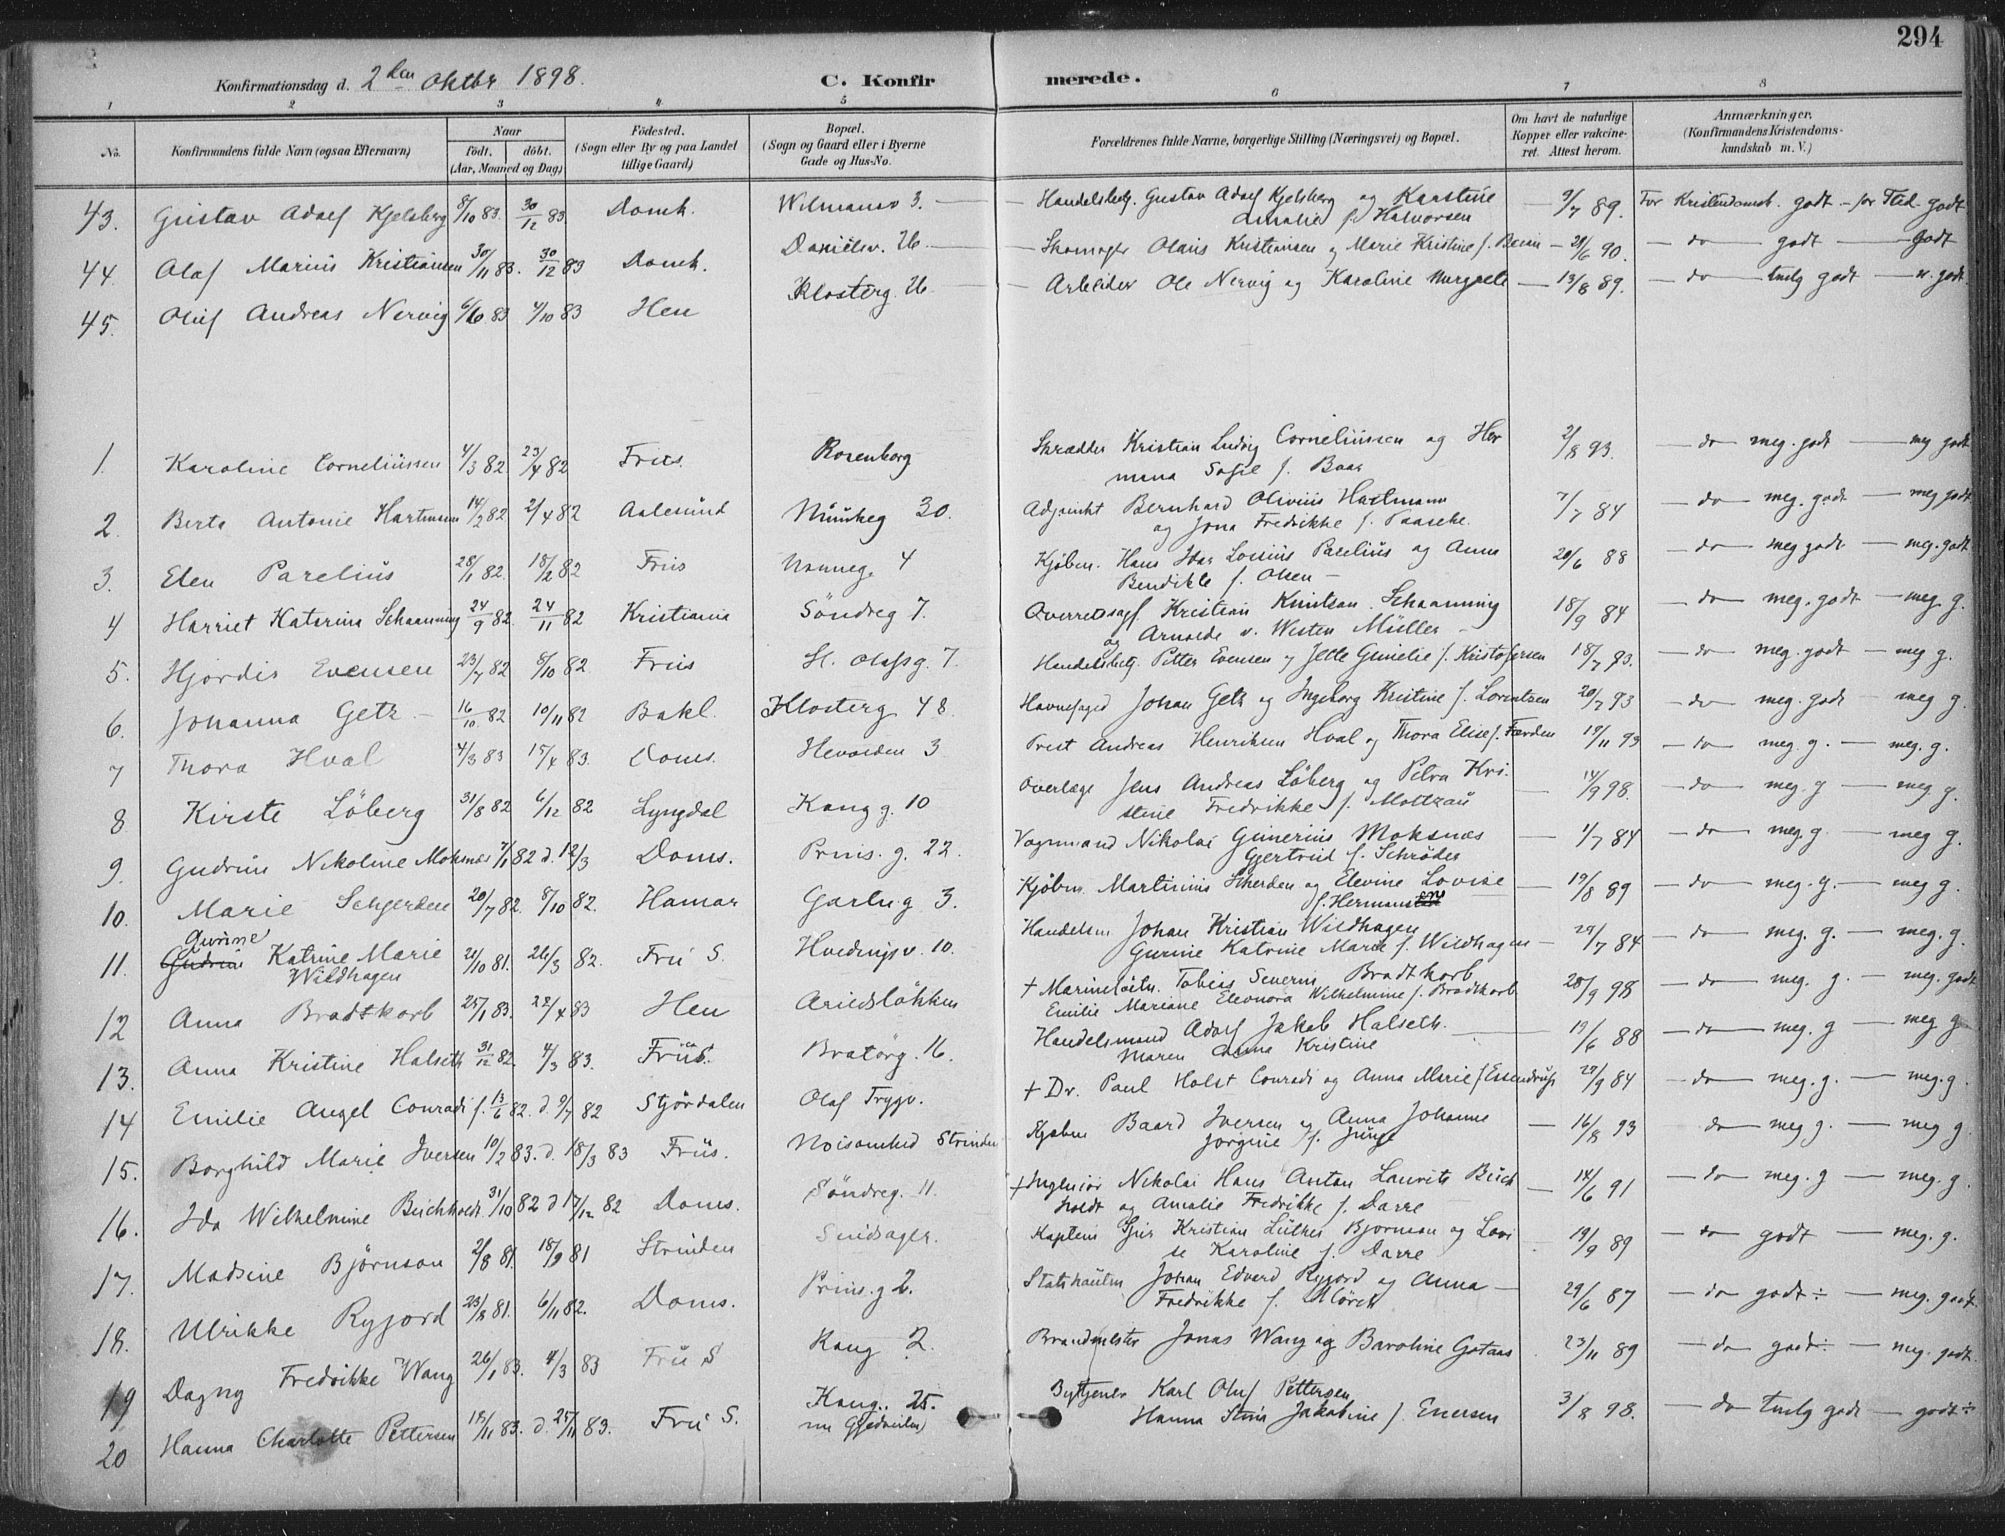 294
Konfirmationsdag d. 2den Oktbr 1898. C. Konfirmerede.
1 2 3 4 5 6 7 8
No. Konfirmandens fulde Navn (ogsaa Efternavn) Naar födt. döbt. (Aar, Maaned og Dag) Födested. (Sogn eller By og paa Landet tillige Gaard) Bopæl. (Sogn og Gaard eller i Byerne Gade og Hus-No. Forældrenes fulde Navne, borgerlige Stilling (Næringsvei) og Bopæl. Om havt de naturlige Kopper eller vakcineret. Attest herom. Anmærkninger. (Konfirmandens Kristendomskundskab m. V.)
43. Gustav Adolf Kjelsberg 8/10 83. 30/12 83 Domk. Wilmansv 3. — Handelsbetj. Gustav Adolf Kjelsberg og Karstine — 9/7 89. For Kristendomsk. godt — for Flid godt
Amalie f. Halvorsen
44. Olaf Marius Kristiansen 30/11 83. 30/12 83 Domk. Danielsv. 26 — Skomager Olaus Kristiansen og Marie Kristine f. — 21/6 90. — do — godt — godt
45. Oluf Andreas Nervig 6/6 83 4/10 83 Hen Klosterg. 26 — Arbeider Ole Nervig og Karoline Margrete — 13/8 89. — do — tmlg godt — m. godt
1. Karoline Corneliussen 4/3 82. 23/4 82 Frus. Rosenborg Skrædder Kristian Ludvig Corneliussen og Her 2/8 93. — do — meg. godt — meg godt
mana Sofie f. Baar
2. Berta Antonie Hartmann 14/2 82 2/4 82 Aalesund Munkeg 30. Adjunkt Bernhard Olivius Hartmann 7/7 84 — do — meg. godt — meg godt
og Jona Fredrikke f. Paasche.
3. Elen Parelius 28/1 82. 18/2 82 Frus Nonneg. 4 Kjøbm. Hans Idar Lossius Parelius og Anna 20/6 88 — do — meg godt — meg. godt
Bendikte f. Olsen —
4 Harriet Katarina Schaanning 24/9 82. 24/11 82 Kristiania Söndreg 7. Overretssagf Kristian Schaanning 18/9 84 — do — meg. godt — meg g.
og v. Westen Müller —
5. Hjördis Evensen 23/7 82 8/10 82. Frus St. Olafsg. 7. Handelsbetj. Petter Evensen og Jette Gunelie f. Kristofersen 18/7 93. — do — meg. godt — meg g.
6. Johanna Getz — 16/10 82 10/11 82 Bakl. Klosterg 48. Havnefoged Johan Getz og Ingeborg Kristine f. Lorentzen 20/7 93 — do — meg. godt — meg g.
7 Thora Hval 4/3 83 15/4 83. Doms. 3 Prest Andreas Henriksen Hval og Thora Elise f. Færden 19/11 93 — do — meg. g. — meg. g.
8 Kirste Löberg 31/8 82 6/12 82 Lyngdal Kong g. 10 Overlæge Jens Andreas Löberg og Petra Kri- — 14/9 98. — do — meg. g — meg g.
stine Fredrikke f. Moltzau
9. Gudrun Nikoline Moksnæs 7/1 82 d. 12/3 Doms. Prins. g. 22. Vognmand Nikolai Gunerius Moksnæs — 1/7 84 — do — meg. g — meg g.
Gjertrud f. Schrøder
10. Marie Schjerden 20/7 82. 8/10 82. Hamar Garbg 3. Kjøbm. Martinius Schjerden og Elevine Lovise — 19/8 89 — do — meg. g. — meg g.
f. Hermansen
Gurine
11. Gudrun Katrine Marie 21/10 81. 26/3 82. Fru S. Hvedingsv. 10. Handelsm Johan Kristian Wildhagen — 29/7 84 — do — meg. g. — meg. g.
Wildhagen Gurine Katrine Marie f. Wildhagen
12 Anna Bradtkorb 25/1 83. 22/4 83 Hen Arildsløkken + Marinelöitn. Tobias Severin Bradtkorb 28/9 98 — do — meg. g. — meg. godt
Emilie Mariane Eleonora Wilhelmine f. Bradtkorb
13. Anna Kristine Halseth 31/12 82. 4/3 83. Frus. Bratörg. 16. Handelsmand Adolf Jakob Halseth. — 19/6 88 — do — meg. g — meg g
Maren Anna Kristine
14 Emilie Angel Conradi f. 13/6 82. d. 9/7 82 Stjördalen Olaf Trygv. + Dr. Paul Holst Conradi og Anna Marie f Essendrup 29/9 84 — do — meg. g. — meg. g.
15. Borghild Marie Iversen 10/2 83. d. 18/3 83 Frus. Strinden Kjøbm Baard Iversen og Anna Johanne — 16/8 93 — do — meg g. — meg g.
Jorgine f. Junge
16. Ida Wilhelmine Buchholdt 31/10 82 d 17/12 82 Doms. Söndreg. 11. + Ingeniör Nikolai Hans Anton Laurits Buch — 14/6 91 — do — meg. g — meg. g.
holdt og Amalie Fredrikke f. Darre
17. Madsine Bjørnson 2/8 81. 18/9 81 Strinden Kaptein Kristian Luther Bjørnson og Lovi 19/9 89 — do — godt — meg. g.
se Karoline f. Darre
18. Ulrikke Ryjord 23/8 81. 6/11 82. Doms. Prins. g 2. Johan Edvard Ryjord og Anna — 29/6 87 — do godt ÷ — meg. godt.
Fredrikke f. Mörch
19 Dagny Fredrikke Wang 26/1 83. 4/3 83 Fru S Kong 2. Brandmester Jonas Wang og Baroline Gotaas 23/11 89 — do — godt ÷ — meg. godt.
20 Hanna Charlotte Pettersen 19/11 83. d. 25/11 83. Fru S. Kong.. 25. Bytjener Karl Oluf Pettersen 3/8 98. — do — tmlg godt — godt ÷
nu Hanna Stina Jakobine f. Enersen